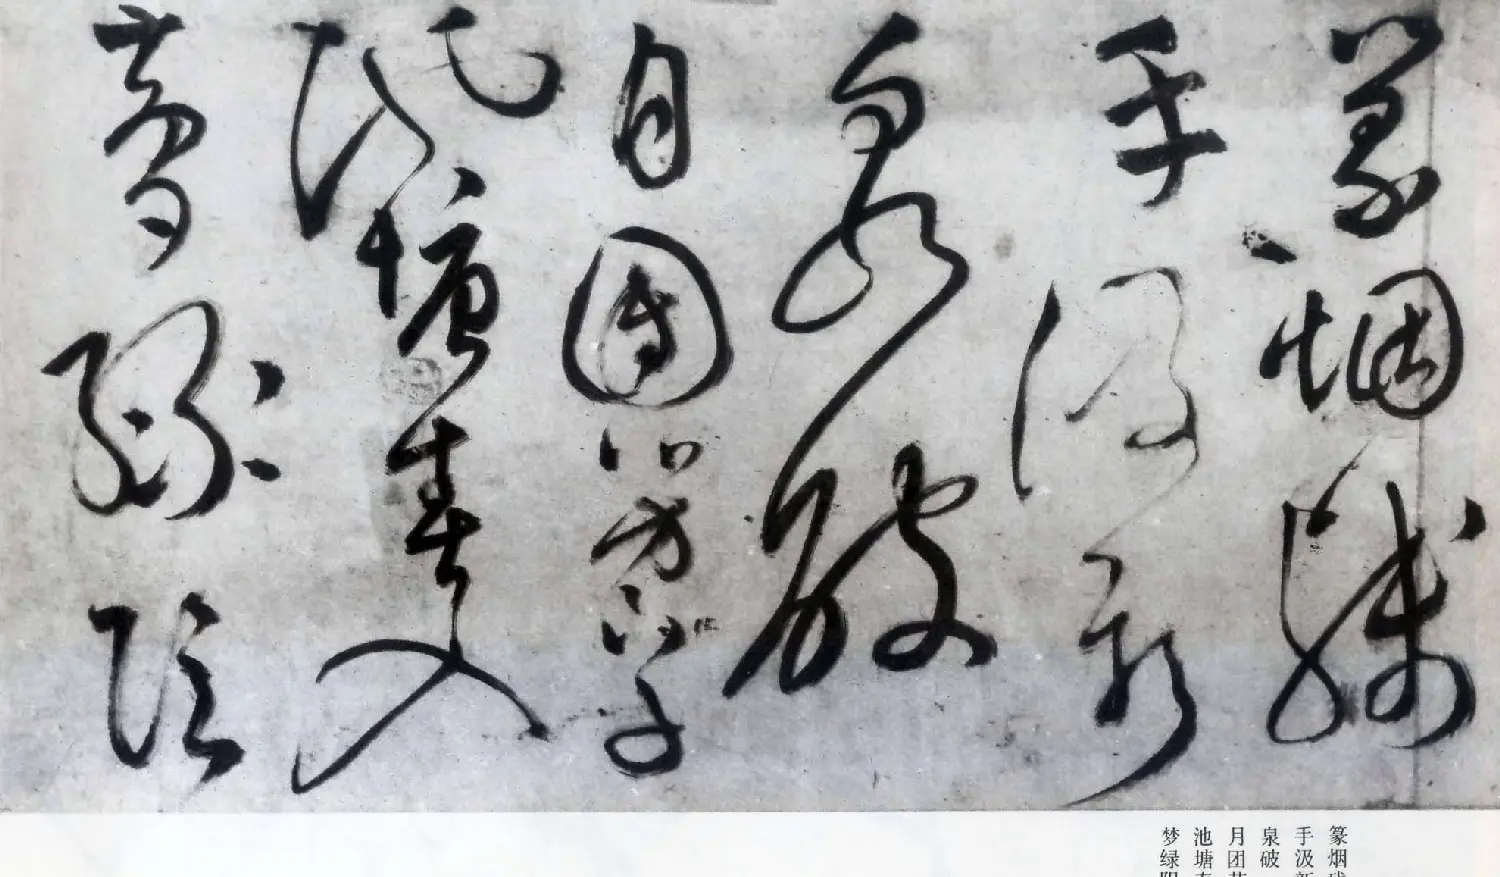 篆烟残
手汲新
泉破
月团芳草
池塘春入
梦绿阴
篆烟残
手汲新
泉破
月团芳
池塘春
梦绿阴